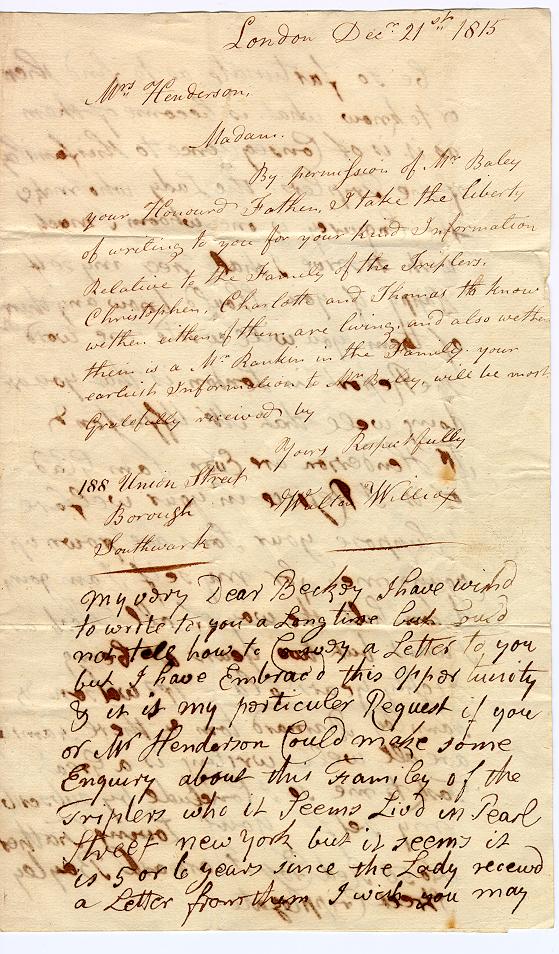 London Decr 21st 1815
Mrs Henderson,
Madam.
By permission of Mr Baley
your Honourd Father, I take the liberty
of writing to you for your kind Information
Relative to the Family of the Triplers.
Christopher, Charlott and Thomas to know
wether either of them are living, and also wether
them is a Mr Rankin in the Family. your
earliest Information to Mr Baley, will be most
Gratefully received by
Yours Respectfully
188 Union Street
Walter
Borough
Southwark
My very Dear Beckey I have wish'd
to write to you a Long time but Cou'd
not tell how to Convey a Letter to you
but I have Embrac'd this oppertunity
& it is my particuler Request if you
or Mr Henderson Could make some
Enquiry about this Familey of the
Triplers who it Seems Liv'd in Pearl
Street new york but it seems it
is 5 or 6 years since the Lady receivd
a Letter from them I wish you may